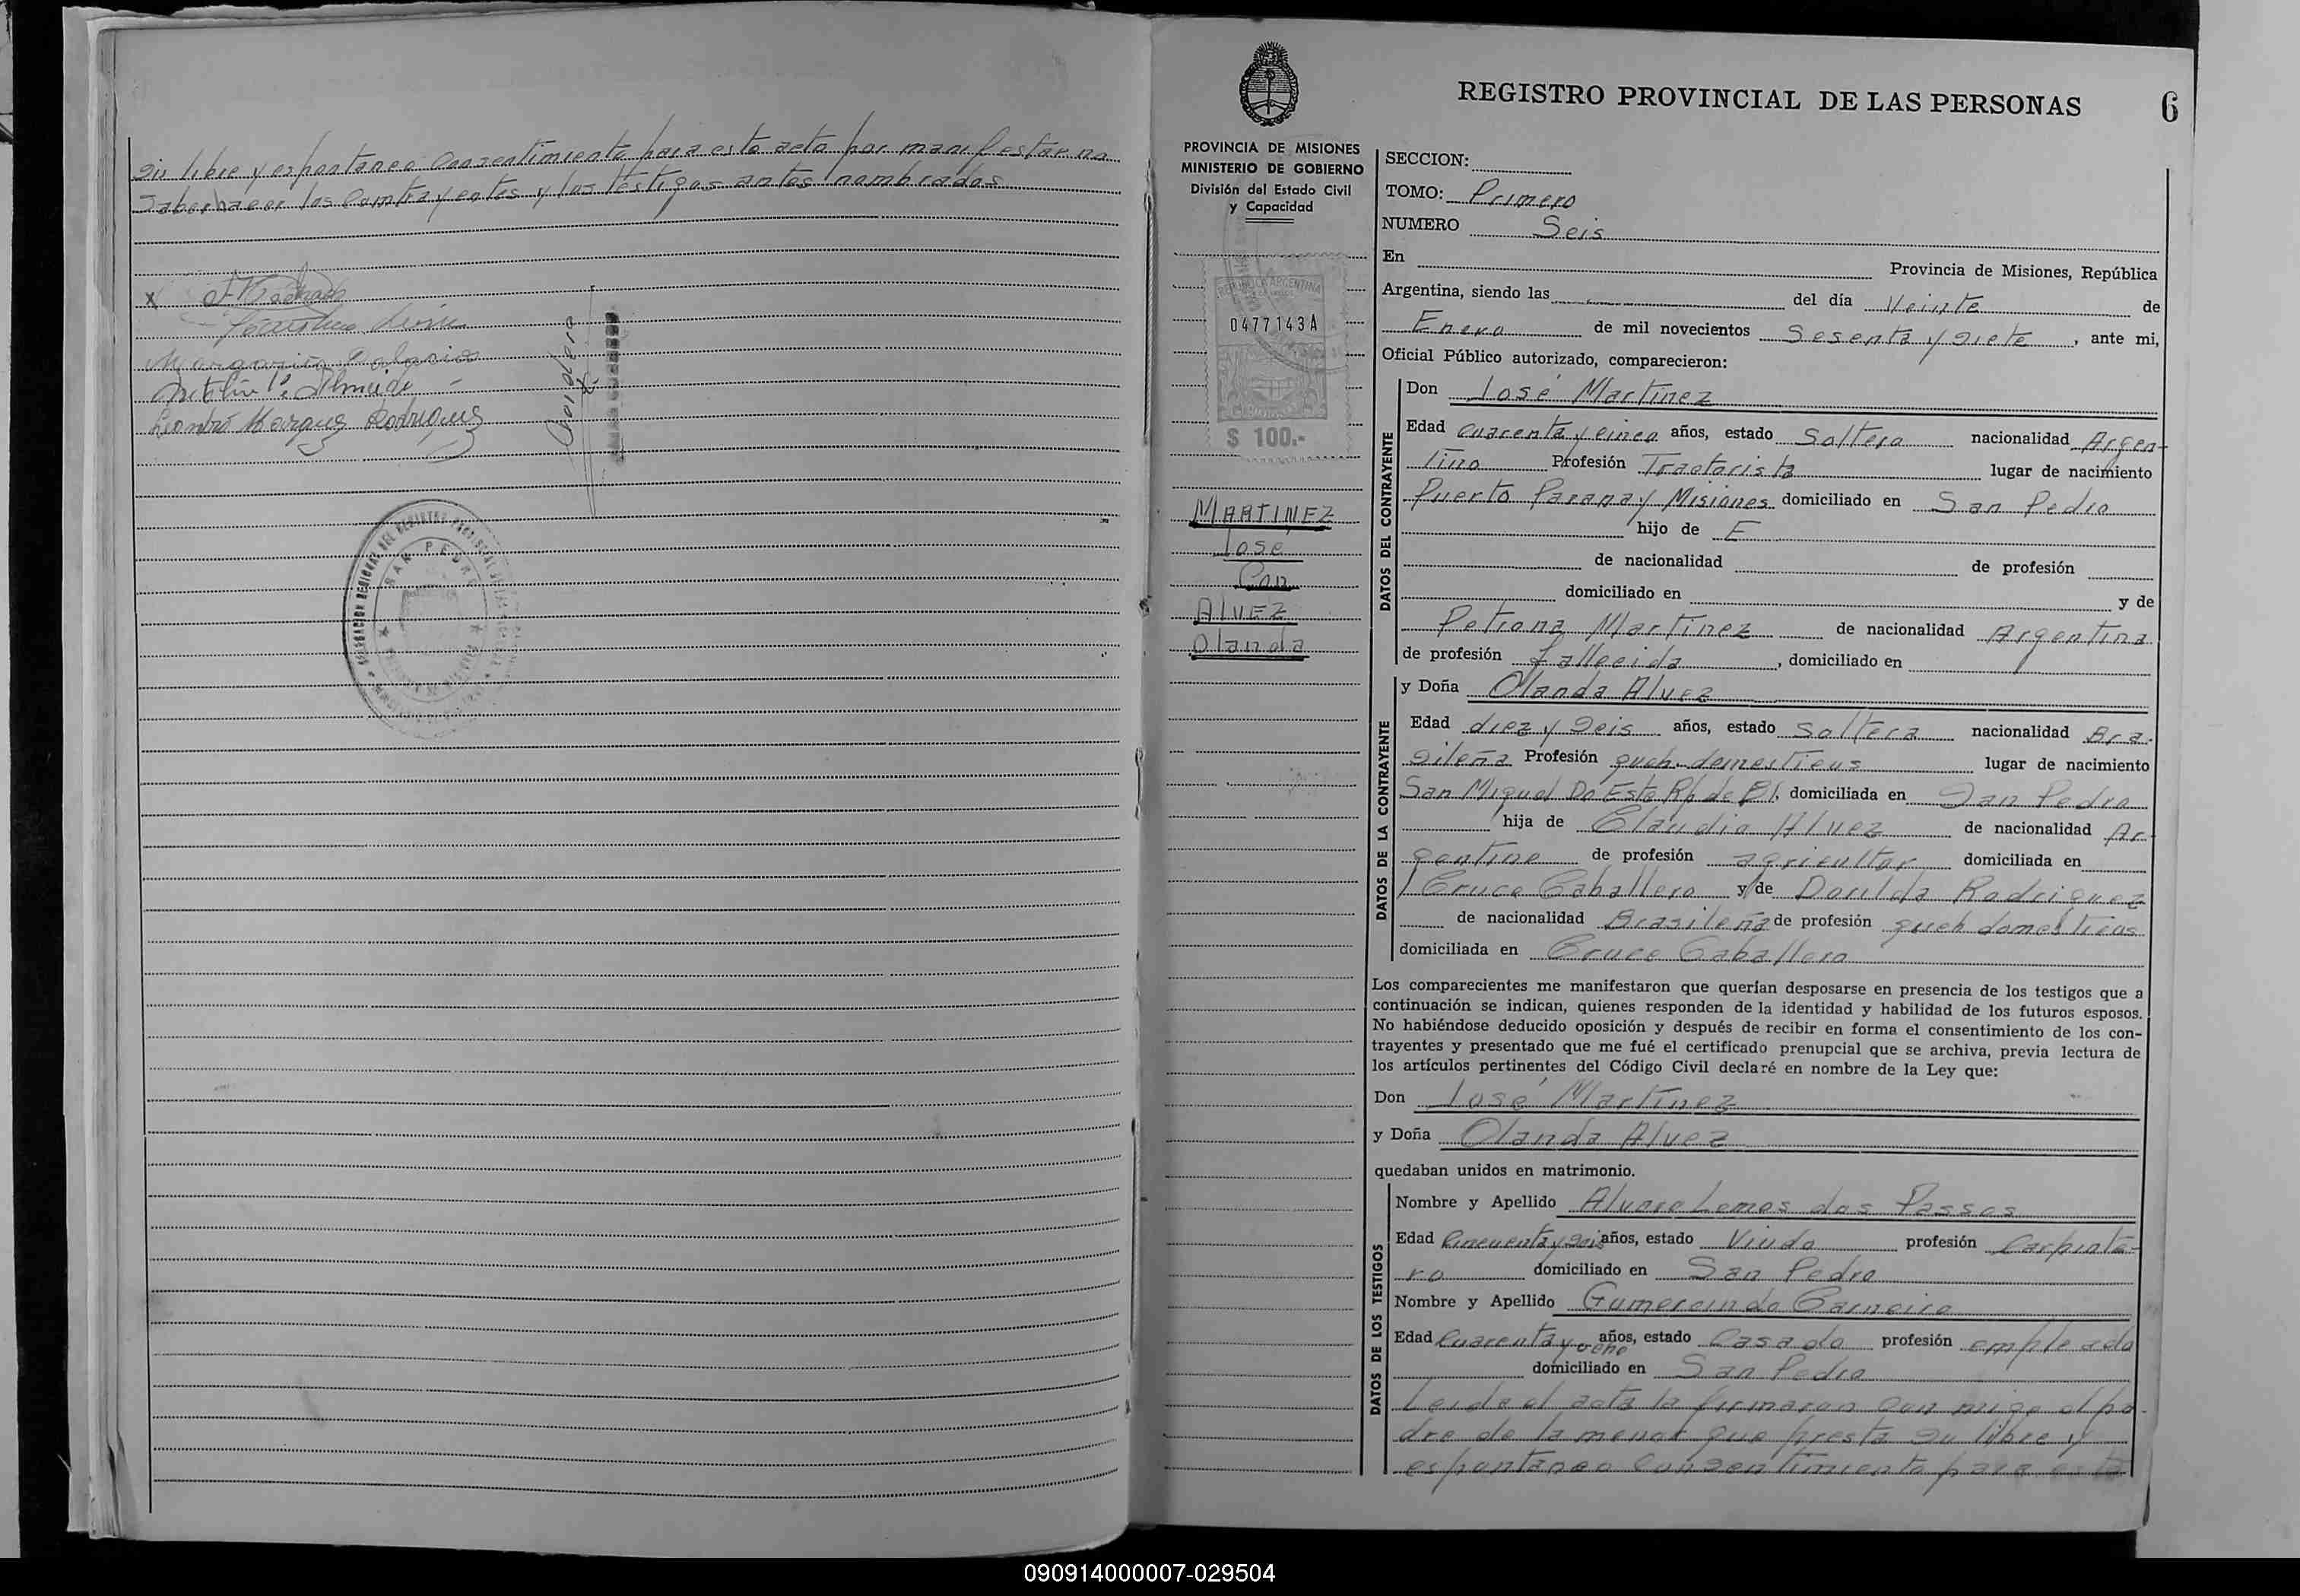 su libre y espontaneo consentimiento para esta acto por manifestar no
saber hacer los contrayentes y los testigos antes nombrados
x
Leandro Marquez Rodriguez
SAN PEDRO
REGISTRO PROVINCIAL DE LAS PERSONAS 6
PROVINCIA DE MISIONES
MINISTERIO DE GOBIERNO
División del Estado Civil
y Capacidad
REPUBLICA ARGENTINA
0477143A
$ 100.-
MARTINEZ
José
Con
ALVEZ
Olanda
SECCION:
TOMO: Primero
NUMERO Seis
En Provincia de Misiones, República
Argentina, siendo las del día Veinte de
Enero de mil novecientos Sesenta y siete, ante mi,
Oficial Público autorizado, comparecieron:
DATOS DEL CONTRAYENTE
Don José Martinez
Edad cuarenta y cinco años, estado Soltero nacionalidad Argen-
tino Profesión Tractorista lugar de nacimiento
Puerto Paranay Misiones domiciliado en San Pedro
hijo de E
de nacionalidad de profesión
domiciliado en y de
Petrona Martinez de nacionalidad Argentina
de profesión fallecida, domiciliado en
DATOS DE LA CONTRAYENTE
y Doña Olanda Alvez
Edad diez y seis años, estado Soltera nacionalidad Bra-
sileña Profesión queh. domesticus lugar de nacimiento
San Miguel Do Este Rp de Bl, domiciliada en San Pedro
hija de Claudio Alvez de nacionalidad Ar-
gentino de profesión agricultor domiciliada en
Cruce Caballero y de Dorilda Rodriguez
de nacionalidad Brasileña de profesión queh domesticas
domiciliada en Cruce Caballero
Los comparecientes me manifestaron que querían desposarse en presencia de los testigos que a
continuación se indican, quienes responden de la identidad y habilidad de los futuros esposos.
No habiéndose deducido oposición y después de recibir en forma el consentimiento de los con-
trayentes y presentado que me fué el certificado prenupcial que se archiva, previa lectura de
los artículos pertinentes del Código Civil declaré en nombre de la Ley que:
Don José Martinez
y Doña Olanda Alvez
quedaban unidos en matrimonio.
DATOS DE LOS TESTIGOS
Nombre y Apellido Alvaro Lemos dos Passos
Edad Cincuenta y seis años, estado Viudo profesión Carpinte-
ro domiciliado en San Pedro
Nombre y Apellido Gumercindo Carneiro
Edad Cuarenta y ocho años, estado Casado profesión empleado
domiciliado en San Pedro
Leida el acta la firmaron con migo el pa-
dre de la menor que presta su libre y
espontaneo consentimiento para esta
090914000007-029504